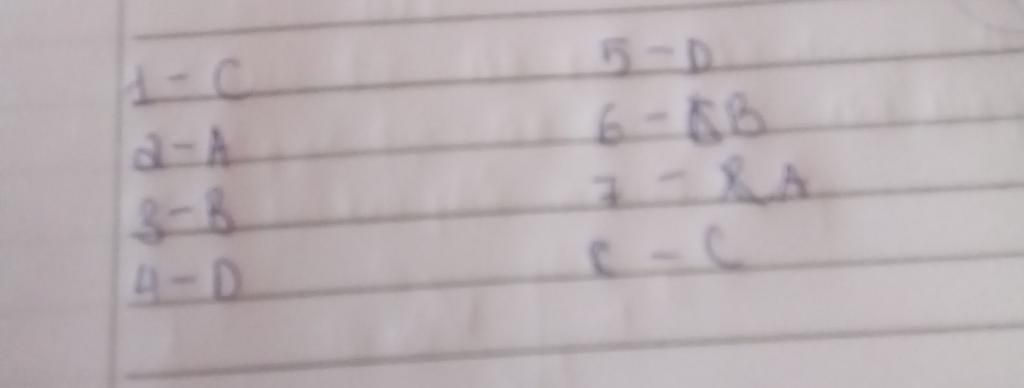 1 - C
2 - A
3 - B
4 - D
5 - D
6 - B
7 - A
8 - C